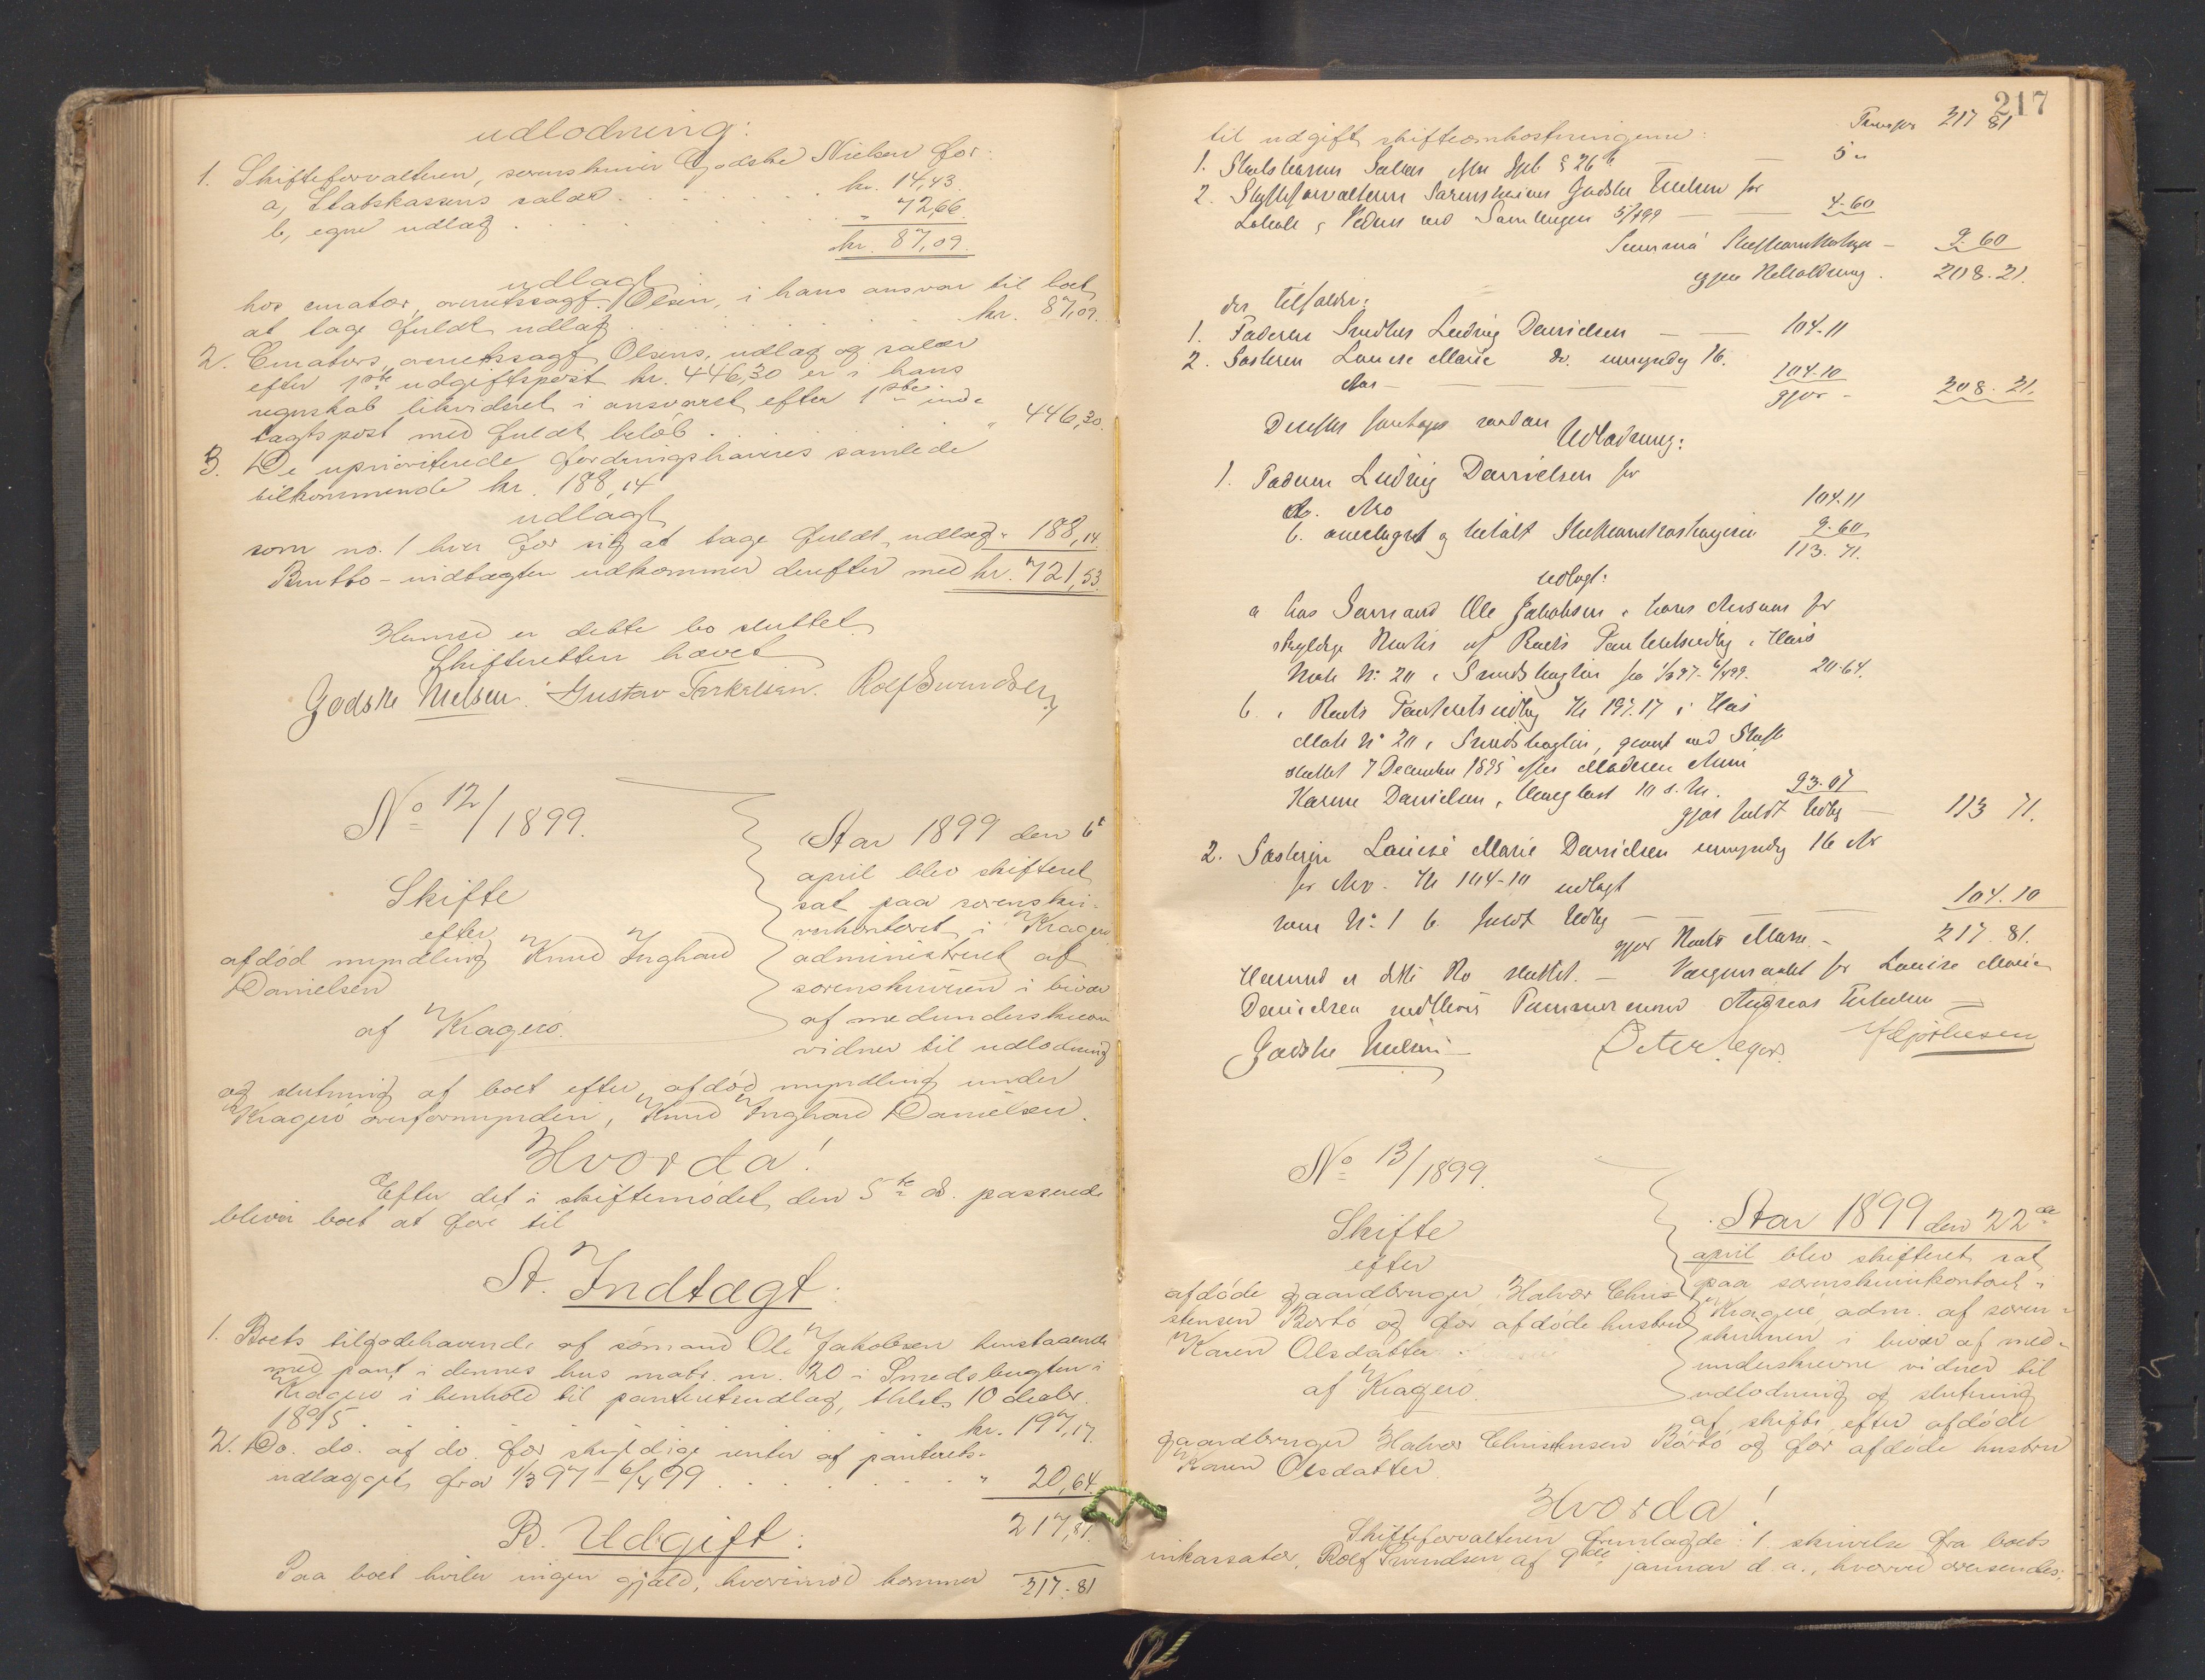 udlodning:
1. Skifteforvalteren, sorenskriver Godske Nielsen for:
a, Statskassens salær . . . . . kr. 14,43.
b, egne udlæg . . . . . " 72,66.
kr. 87,09.
udlagt:
hos curator, overretssagf. Olsen, i hans ansvar til boet
at tage fuldt udlæg . . . . . kr. 87,09.
2. Curators, overretssagf. Olsens, udlæg og salær
efter 1ste udgiftspost kr. 446,30 er i hans
regnskab likvideret i ansvaret efter 1ste ind-
tægtspost med fuldt beløb . . . . " 446,30.
3. De uprioriterede fordringshaveres samlede
tilkommende kr. 188,14
udlagt
som no. 1 hver for sig at tage fuldt udlæg " 188,14
Brutto-indtægten udkommer derefter med kr. 721,53.
Hermed er dette bo sluttet.
Skifteretten hævet
Godske Nielsen. Gustav Terkelsen. Rolf Svendsen
No 12/1899.
Skifte
efter
afdød myndling Knud Inghard
Danielsen
af Kragerø.
Aar 1899 den 6te
april blev skifteret
sat paa sorenskri-
verkontoret i Kragerø
administreret af
sorenskriveren i bivær
af medunderskrevne
vidner til udlodning
og slutning af boet efter afdød myndling under
Kragerø overformynderi, Knud Inghard Danielsen.
Hvorda!
Efter det i skiftemødet den 5te ds. passerede
bliver boet at føre til
A. Indtægt:
1. Boets tilgodehavende af sømand Ole Jakobsen henstaaende
med pant i dennes hus matr. nr. 20 i Smedsbugten i
Kragerø i henhold til panteretsudlæg, thlst. 10 decbr.
1895 . . . . . kr. 197,17
2. Do. do. af do. for skyldige renter af panterets-
udlægget fra 1/3 97 - 6/4 99 . . . . " 20,64.
217,81.
B. Udgift:
Paa boet hviler ingen gjæld, hvorimod kommer 217-81
217
Transport 217 81
til udgift skifteomkostningerne:
1. Statskassens Salær efter Spl § 26 b — — 5 "
2. Skifteforvalteren Sorenskriver Godske Nielsen for
Lokale og Vidner ved Samlingen 5/4 99 — — 4-60
Summa Skifteomkostninger — 9.60
igjen til Udlodning . 208.21.
der tilfalder:
1. Faderen Ludvig Danielsen — — 104-11
2. Søsteren Louise Marie do. umyndig 16.
Aar — — 104-10
gjør - 208.21.
Derefter foretages saadan
Udlodning:
1. Faderen Ludvig Danielsen for
a. Arv 104.11
b. overtaget og betalt Skifteomkostningerne 9.60
113.71.
udlagt:
a hos Sømand Ole Jakobsen i hans Ansvar for
skyldige Renter af Boets Panteretsudlæg i Huus
Matr No 20 i Smedsbugten fra 1/3 97- 6/4 99. 20.64.
b. i Boets Panteretsudlæg Kr 197.17 i Hus
Matr No 20 i Smedsbugten, gjort ved Skifte
sluttet 7 December 1895 efter Moderen Anne
Karine Danielsen, 93.07
gjør fuldt Udlæg — 113 71.
2. Søsteren Louise Marie Danielsen umyndig 16 Ar
for Arv. Kr 104-10 udlagt
som No 1 b. fuldt Udlæg — — — 104.10
gjør Boets Masse - 217.81.
Hermed er dette Bo sluttet. — Værgemaalet for Louise Marie
Danielsen Tømmermand Andreas —
Godske Nielsen — Peter
No 13/1899.
Skifte
efter
afdøde gaardbruger Halvor Chri-
stensen Bortø og før afdøde hustru
Karen Olsdatter.
af Kragerø.
Aar 1899 den 22de
april blev skifteret sat
paa sorenskriverkontoret i
Kragerø, adm. af soren-
skriveren i bivær af med-
underskrevne vidner til
udlodning og slutning
af skifte efter afdøde
gaardbruger Halvor Christensen Bortø og før afdøde hustru
Karen Olsdatter.
Hvorda!
Skifteforvalteren fremlagde: 1. skrivelse fra boets
inkassator, Rolf Svendsen af 9de januar d. a., hvorved oversendes: